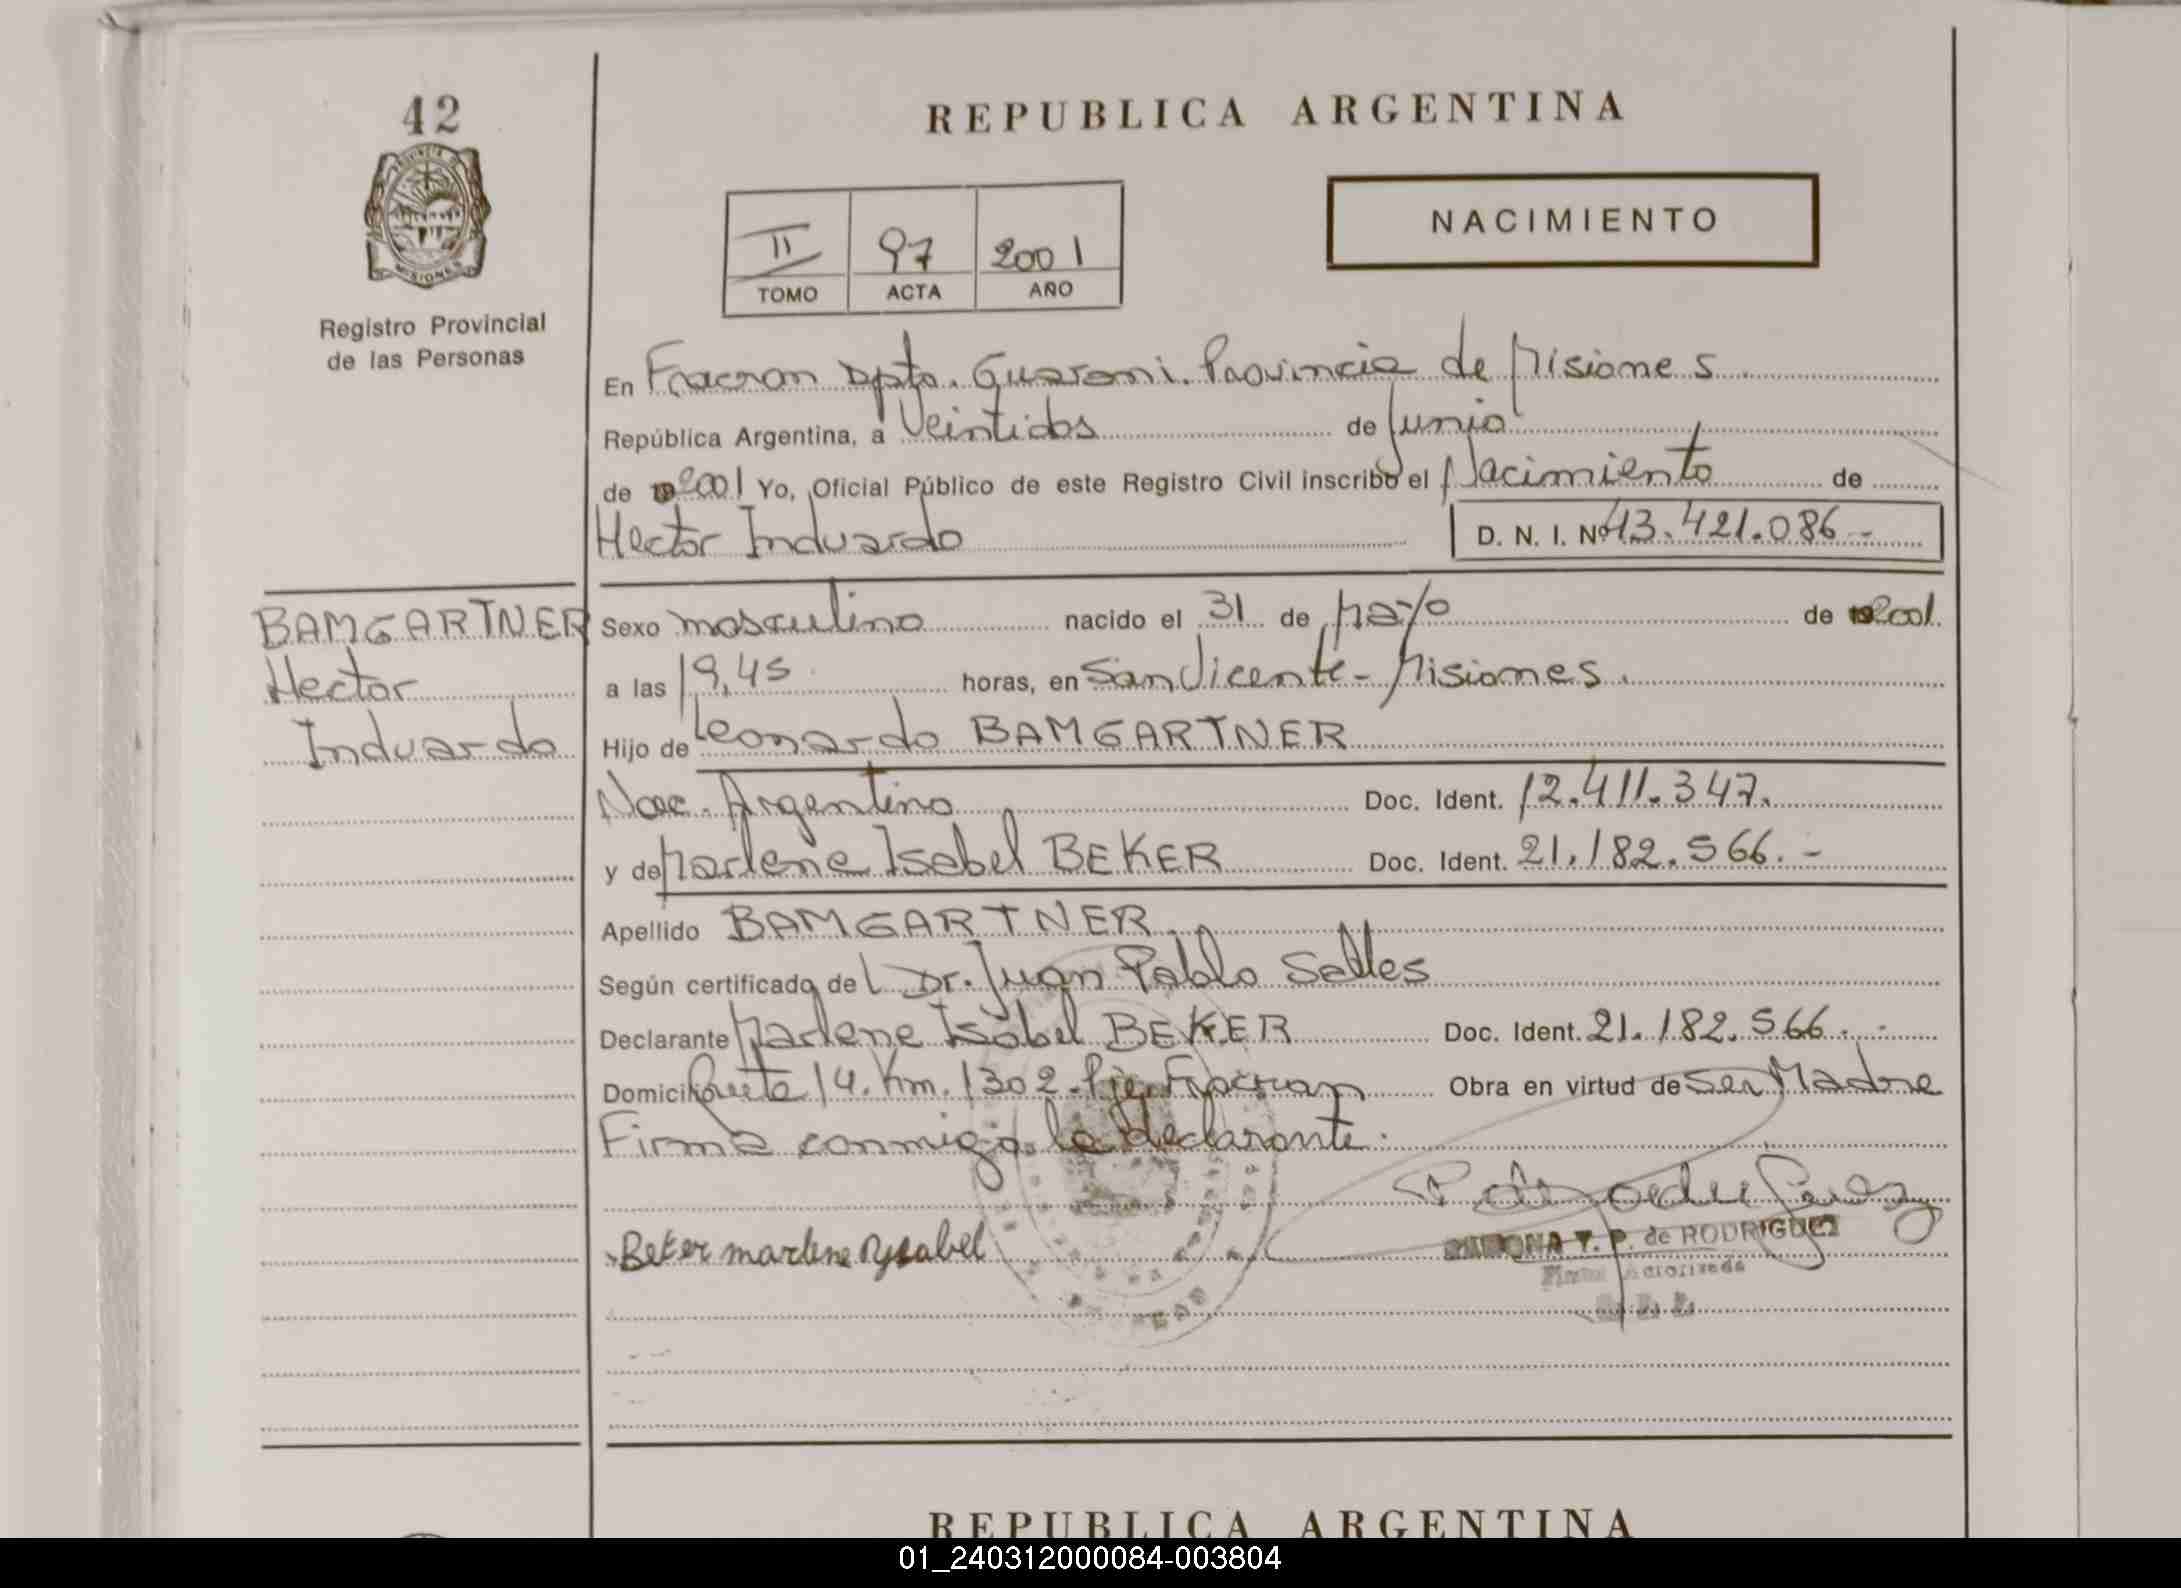 42
PROVINCIA DE
MISIONES
Registro Provincial
de las Personas
REPUBLICA ARGENTINA
NACIMIENTO
II 97 2001
TOMO ACTA AÑO
En Fracran Dpto. Guarani. Provincia de Misiones
República Argentina, a Veintidos de Junio
de 2001 Yo, Oficial Público de este Registro Civil inscribo el Nacimiento de
Hector Induardo D. N. I. Nº 43.421.086-
BAMGARTNER
Hector
Induardo
Sexo masculino nacido el 31 de Mayo de 2001.
a las 19,45 horas, en San Vicente-Misiones.
Hijo de Leonardo BAMGARTNER
Nac. Argentino Doc. Ident. 12.411.347.
y de Marlene Isabel BEKER Doc. Ident. 21.182.566.-
Apellido BAMGARTNER
Según certificado de l Dr. Juan Pablo Selles
Declarante Marlene Isabel BEKER Doc. Ident. 21.182.566.-
Domicilio Ruta 14. Km. 1302. Pje. Fracran Obra en virtud de ser Madre
Firma conmigo la declarante.
Beker marlene Ysabel
T. P. de RODRIGUEZ
Firma Autorizada
REPUBLICA ARGENTINA
01_240312000084-003804